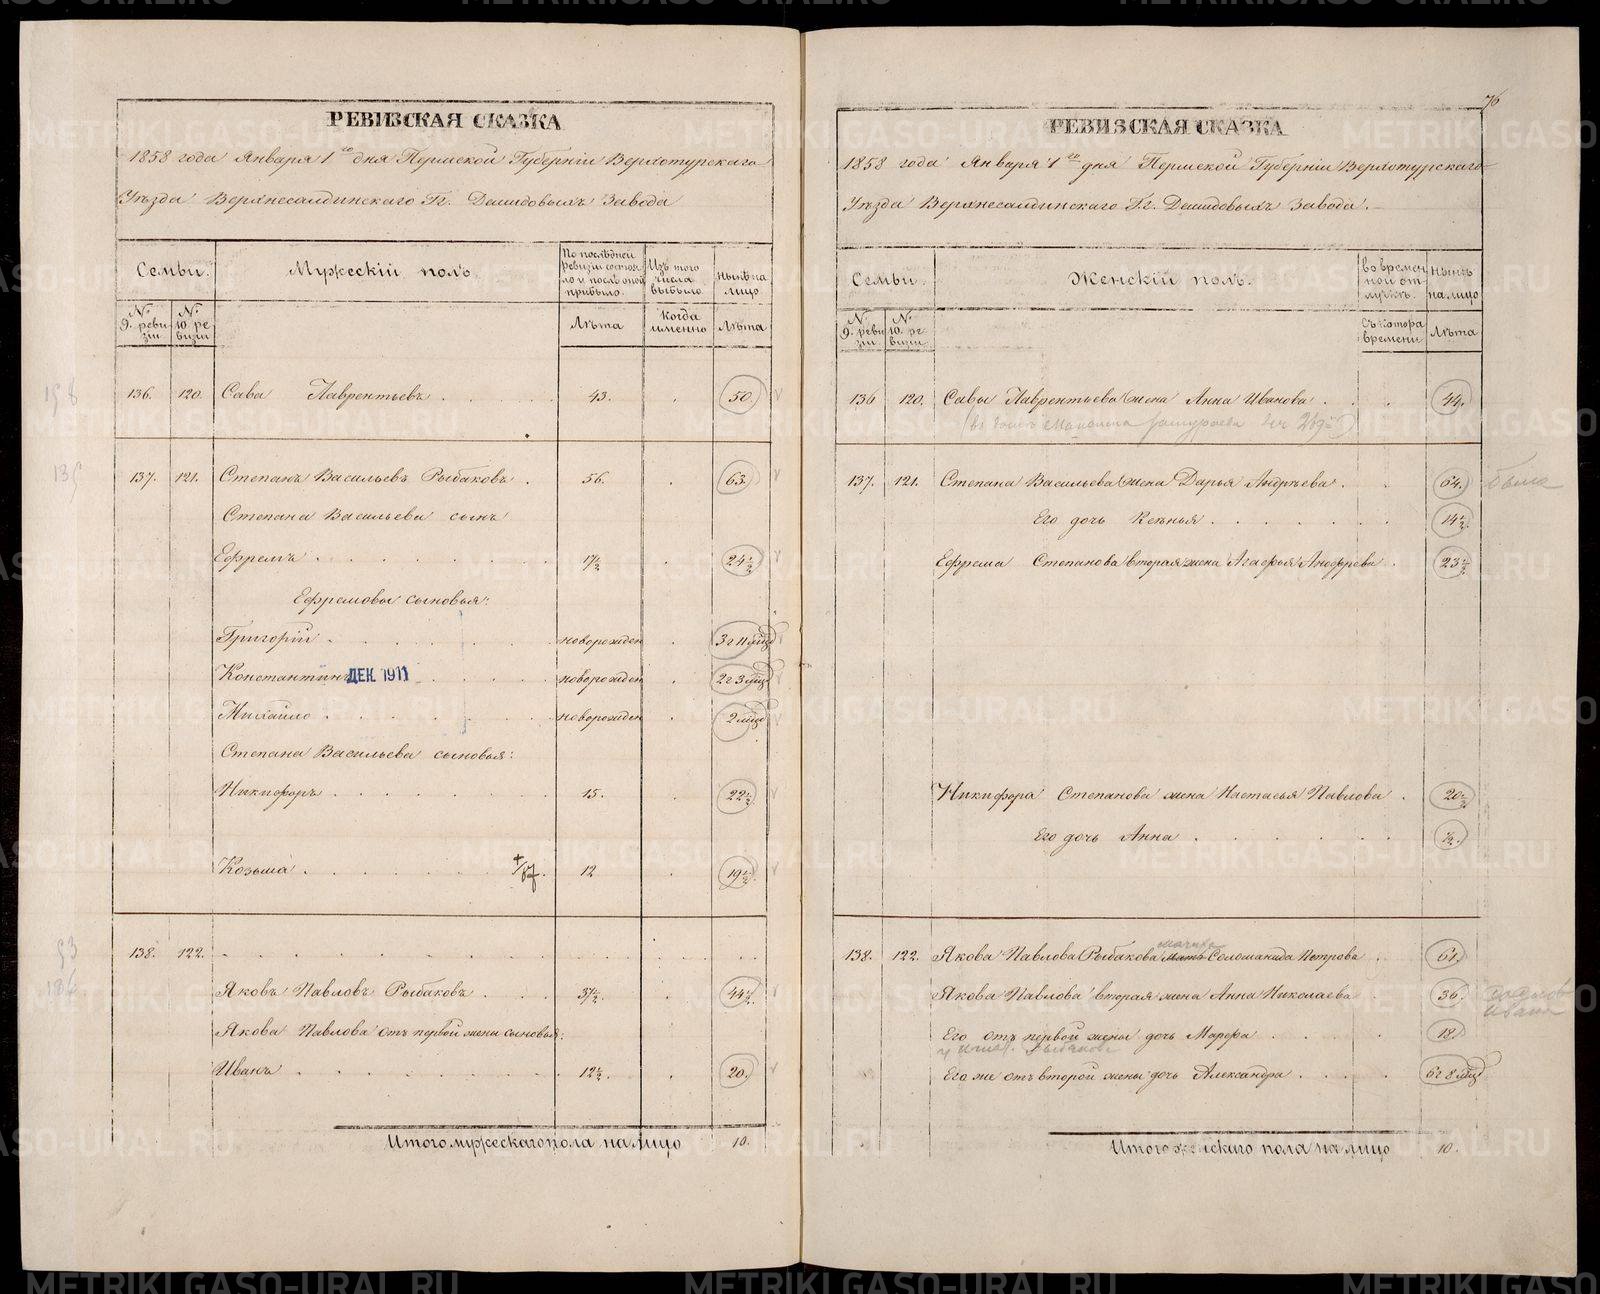 РЕВИЗСКАЯ СКАЗКА
1858 года Января 1го дня Пермской Губернiи Верхотурскаго
Уѣзда Верхнесалдинскаго Гг. Демидовыхъ Завода
Семьи.
Мужескiй полъ
По послѣдней ревизiи состояло и послѣ оной прибыло.
Изъ того числа выбыло
нынѣ на лицо
№ 9. ревизiи
№ 10 ревизiи
Лѣта
Когда именно
Лѣта
136. 120. Сава Лаврентьевъ . 43. . 50.
137. 121. Степанъ Васильевъ Рыбаковъ . 56. . 63.
Степана Васильева сынъ
Ефремъ . 17½ . 24½
Ефремовы сыновья:
Григорiй . новорожден . 3 г 11 мцв
Константинъ ДЕК. 1911 . новорожден . 2 г 3 мцв
Михайло . новорожден . 2 мцв
Степана Васильева сыновья:
Никифоръ . 15. . 22½
Козьма . 12 . 19½
138. 122.
Яковъ Павловъ Рыбаковъ . 37½. . 44½.
Якова Павлова отъ первой жены сыновья:
Иванъ . 12½. . 20.
Итого мужескаго пола на лицо 10.
76
РЕВИЗСКАЯ СКАЗКА
1858 года Января 1го дня Пермской Губернiи Верхотурскаго
Уѣзда Верхнесалдинскаго Гг. Демидовыхъ Завода.
Семьи.
Женскiй полъ.
во временной отлучкѣ.
нынѣ на лицо
№ 9. ревизiи
№ 10. ревизiи
Съ котора времени
Лѣта
136 120. Савы Лаврентьева жена Анна Иванова . 44.
137. 121. Степана Васильева жена Дарья Андрѣева . 64.
Его дочь Ксѣнья . 14½.
Ефрема Степанова вторая жена Агафья Анофрева . 23½
Никифора Степанова жена Настасья Павлова . 20½
Его дочь Анна . ½.
мачиха
138. 122. Якова Павлова Рыбакова мать Соломанида Петрова . 61.
Якова Павлова вторая жена Анна Николаева 36.
Его отъ первой жены дочь Марфа . 18.
Его же отъ второй жены дочь Александра . 6 г 8 мцв
Итого женскаго пола на лицо 10.
METRIKI.GASO-URAL.RU